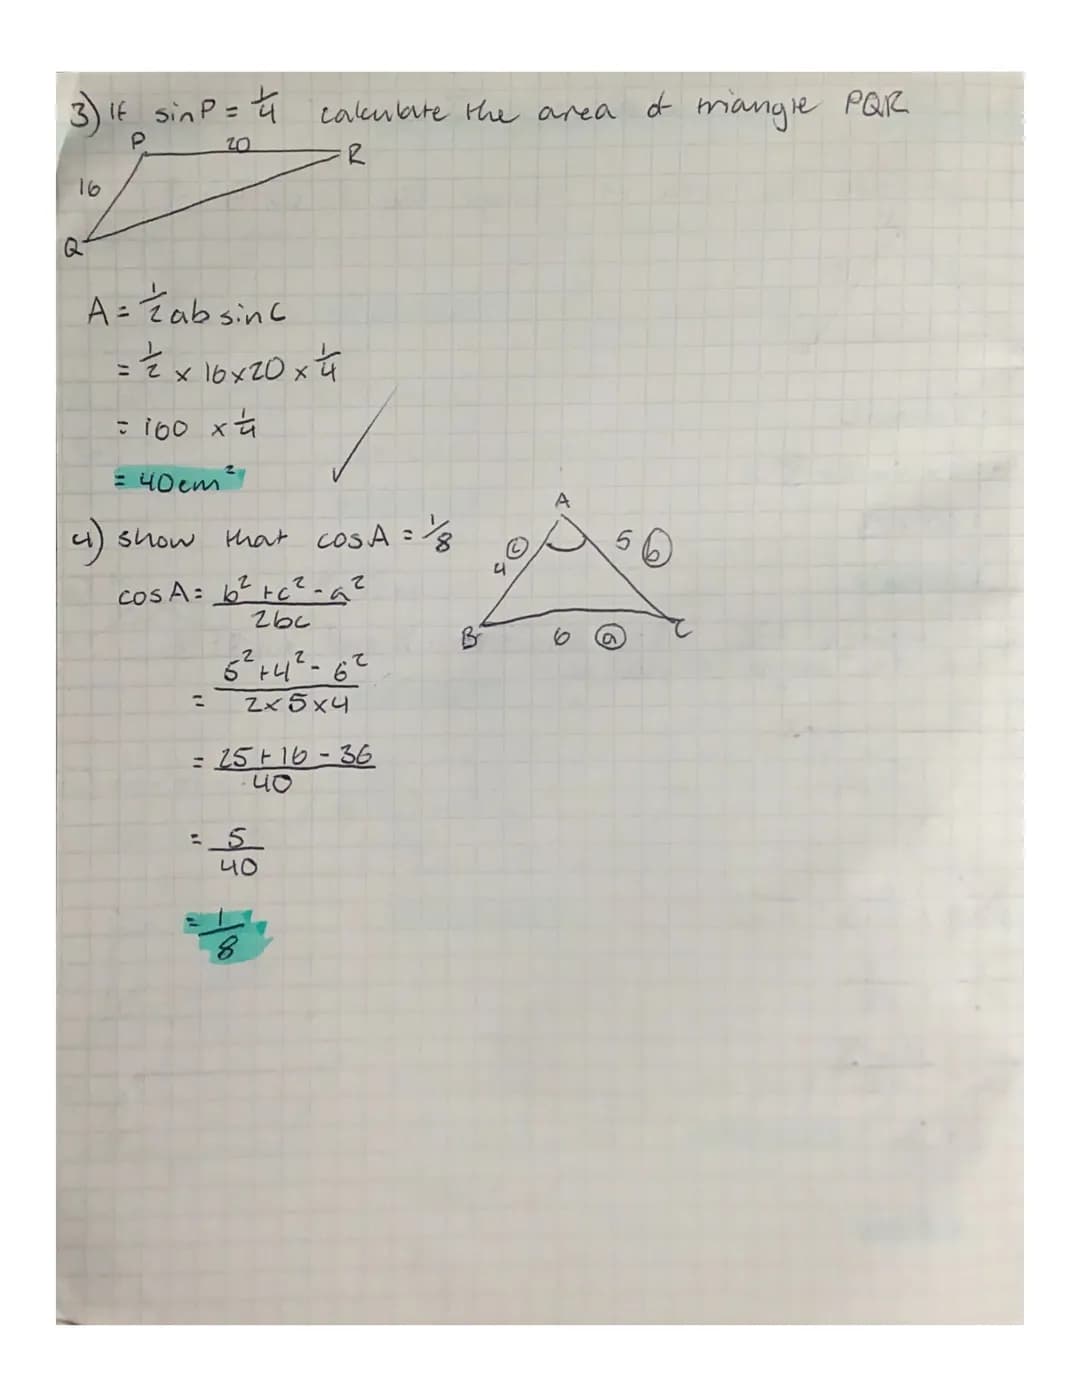 3) If sinP = 1/4 calculate the area of triangle PQR
P 20 R
16
Q
A = 1/2 ab sin C
= 1/2 × 16 × 20 × 1/4
= 160 × 1/4
= 40cm²
4) show that cosA = 1/8
A
c 4 5 b
B 6 a C
cosA = b² + c² - a² / 2bc
= 5² + 4² - 6² / 2 × 5 × 4
= 25 + 16 - 36 / 40
= 5 / 40
= 1 / 8